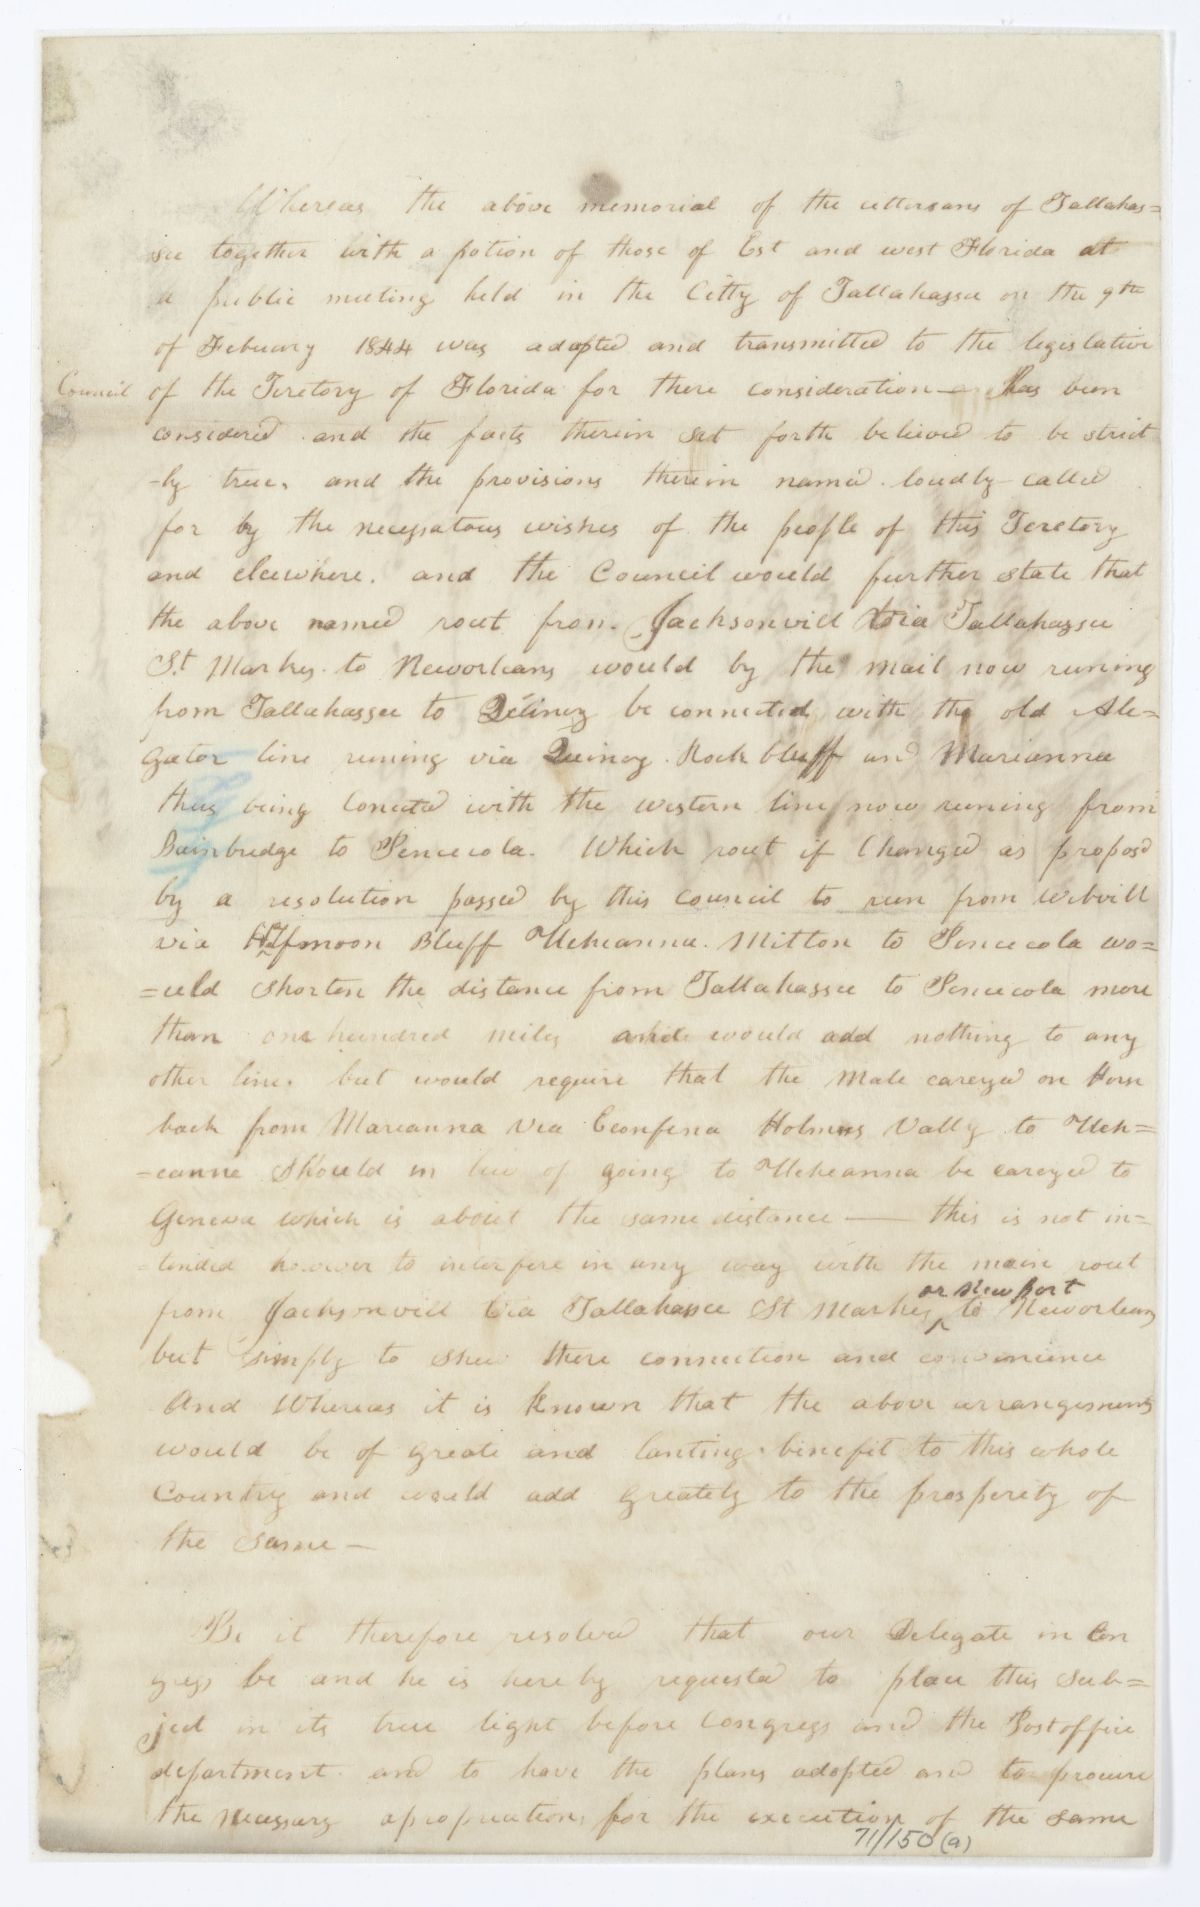 Whereas the above memorial of the cittersans of Tallahas=
see together with a potion of those of Est and west Florida at
a public meeting held in the Citty of Tallahassee on the 9th
of Febuary 1844 was adopted and transmitted to the legislative
Council of the Teretory of Florida for there consideration — Has been
considered and the facts therein set forth believed to be strict
-ly true, and the provisions therein named loudly called
for by the necessatous wishes of the people of this Teretory
and elsewhere. and the Council would further state that
the above named rout from Jacksonvill Via Tallahassee
St Marks to Neworleans would by the mail now runing
from Tallahassee to Quincy be connected with the old Ale=
gator line runing via Quincy Rock bluff and Marianna
thus being Conected with the western line now runing from
Bainbredge to Pencecola. Which rout if Changed as proposd
by a resolution passed by this council to run from Webvill
via Hfmoon Bluff Ucheanna Mitton to Pencecola wo=
=uld shorten the distance from Tallahassee to Pencecola more
than one hundred miles and would add nothing to any
other line. but would require that the male careyed on Horse
back from Marianna via Econfena Holmes Vally to Uch=
=eanna Should in lieu of going to Ucheanna be careyed to
Geneva which is about the same distance — this is not in=
=tended however to interfere in any way with the main rout
from Jacksonvill Via Tallahassee St Marks or New Port to Neworleans
but simply to shew there connection and convenience
And Whereas it is known that the above arrangements
would be of greate and lanting benefit to this whole
Country and would add greately to the prosperity of
the same —
Be it therefore resolved that our Delegate in Con
gress be and he is here by requested to place this sub=
ject in its true light before Congress and the Postoffice
department and to have the plans adopted and to procure
the necessary apropreations for the execution of the same
71/150(a)